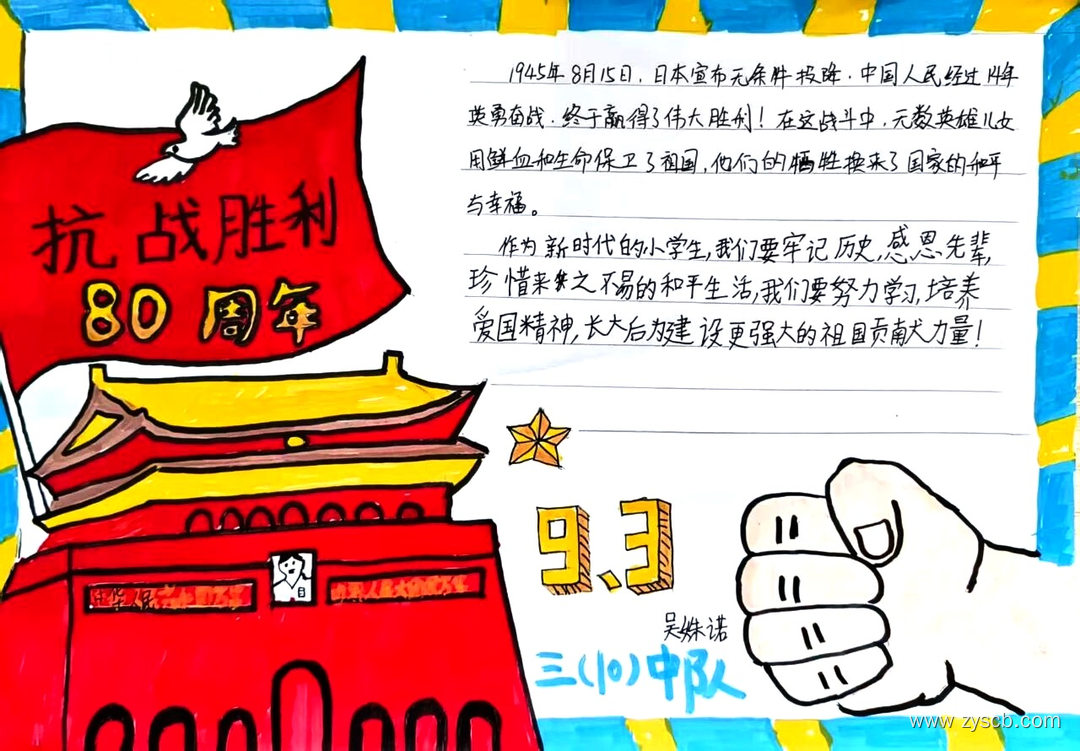 抗战胜利
80周年
1945年8月15日,日本宣布无条件投降.中国人民经过14年
英勇奋战,终于赢得了伟大胜利!在这战斗中,无数英雄儿女
用鲜血和生命保卫了祖国,他们的牺牲换来了国家的和平
与幸福。
作为新时代的小学生,我们要牢记历史,感恩先辈,
珍惜来之不易的和平生活,我们要努力学习,培养
爱国精神,长大后为建设更强大的祖国贡献力量!
9.3
吴姝诺
三(10)中队
www.zyscb.com